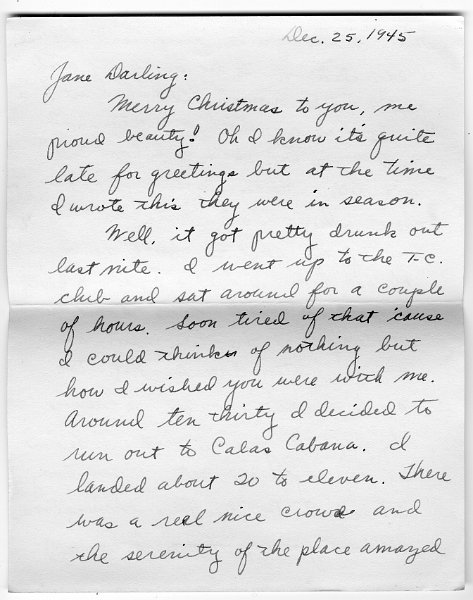 Dec. 25, 1945
Jane Darling:
Merry Christmas to you, me
proud beauty! Oh I know it's quite
late for greetings but at the time
I wrote this they were in season.
Well, it got pretty drunk out
last nite. I went up to the T-C.
club and sat around for a couple
of hours. Soon tired of that 'cause
I could think of nothing but
how I wished you were with me.
Around ten thirty I decided to
run out to Calas Cabana. I
landed about 20 to eleven. There
was a real nice crowd and
the serenity of the place amazed